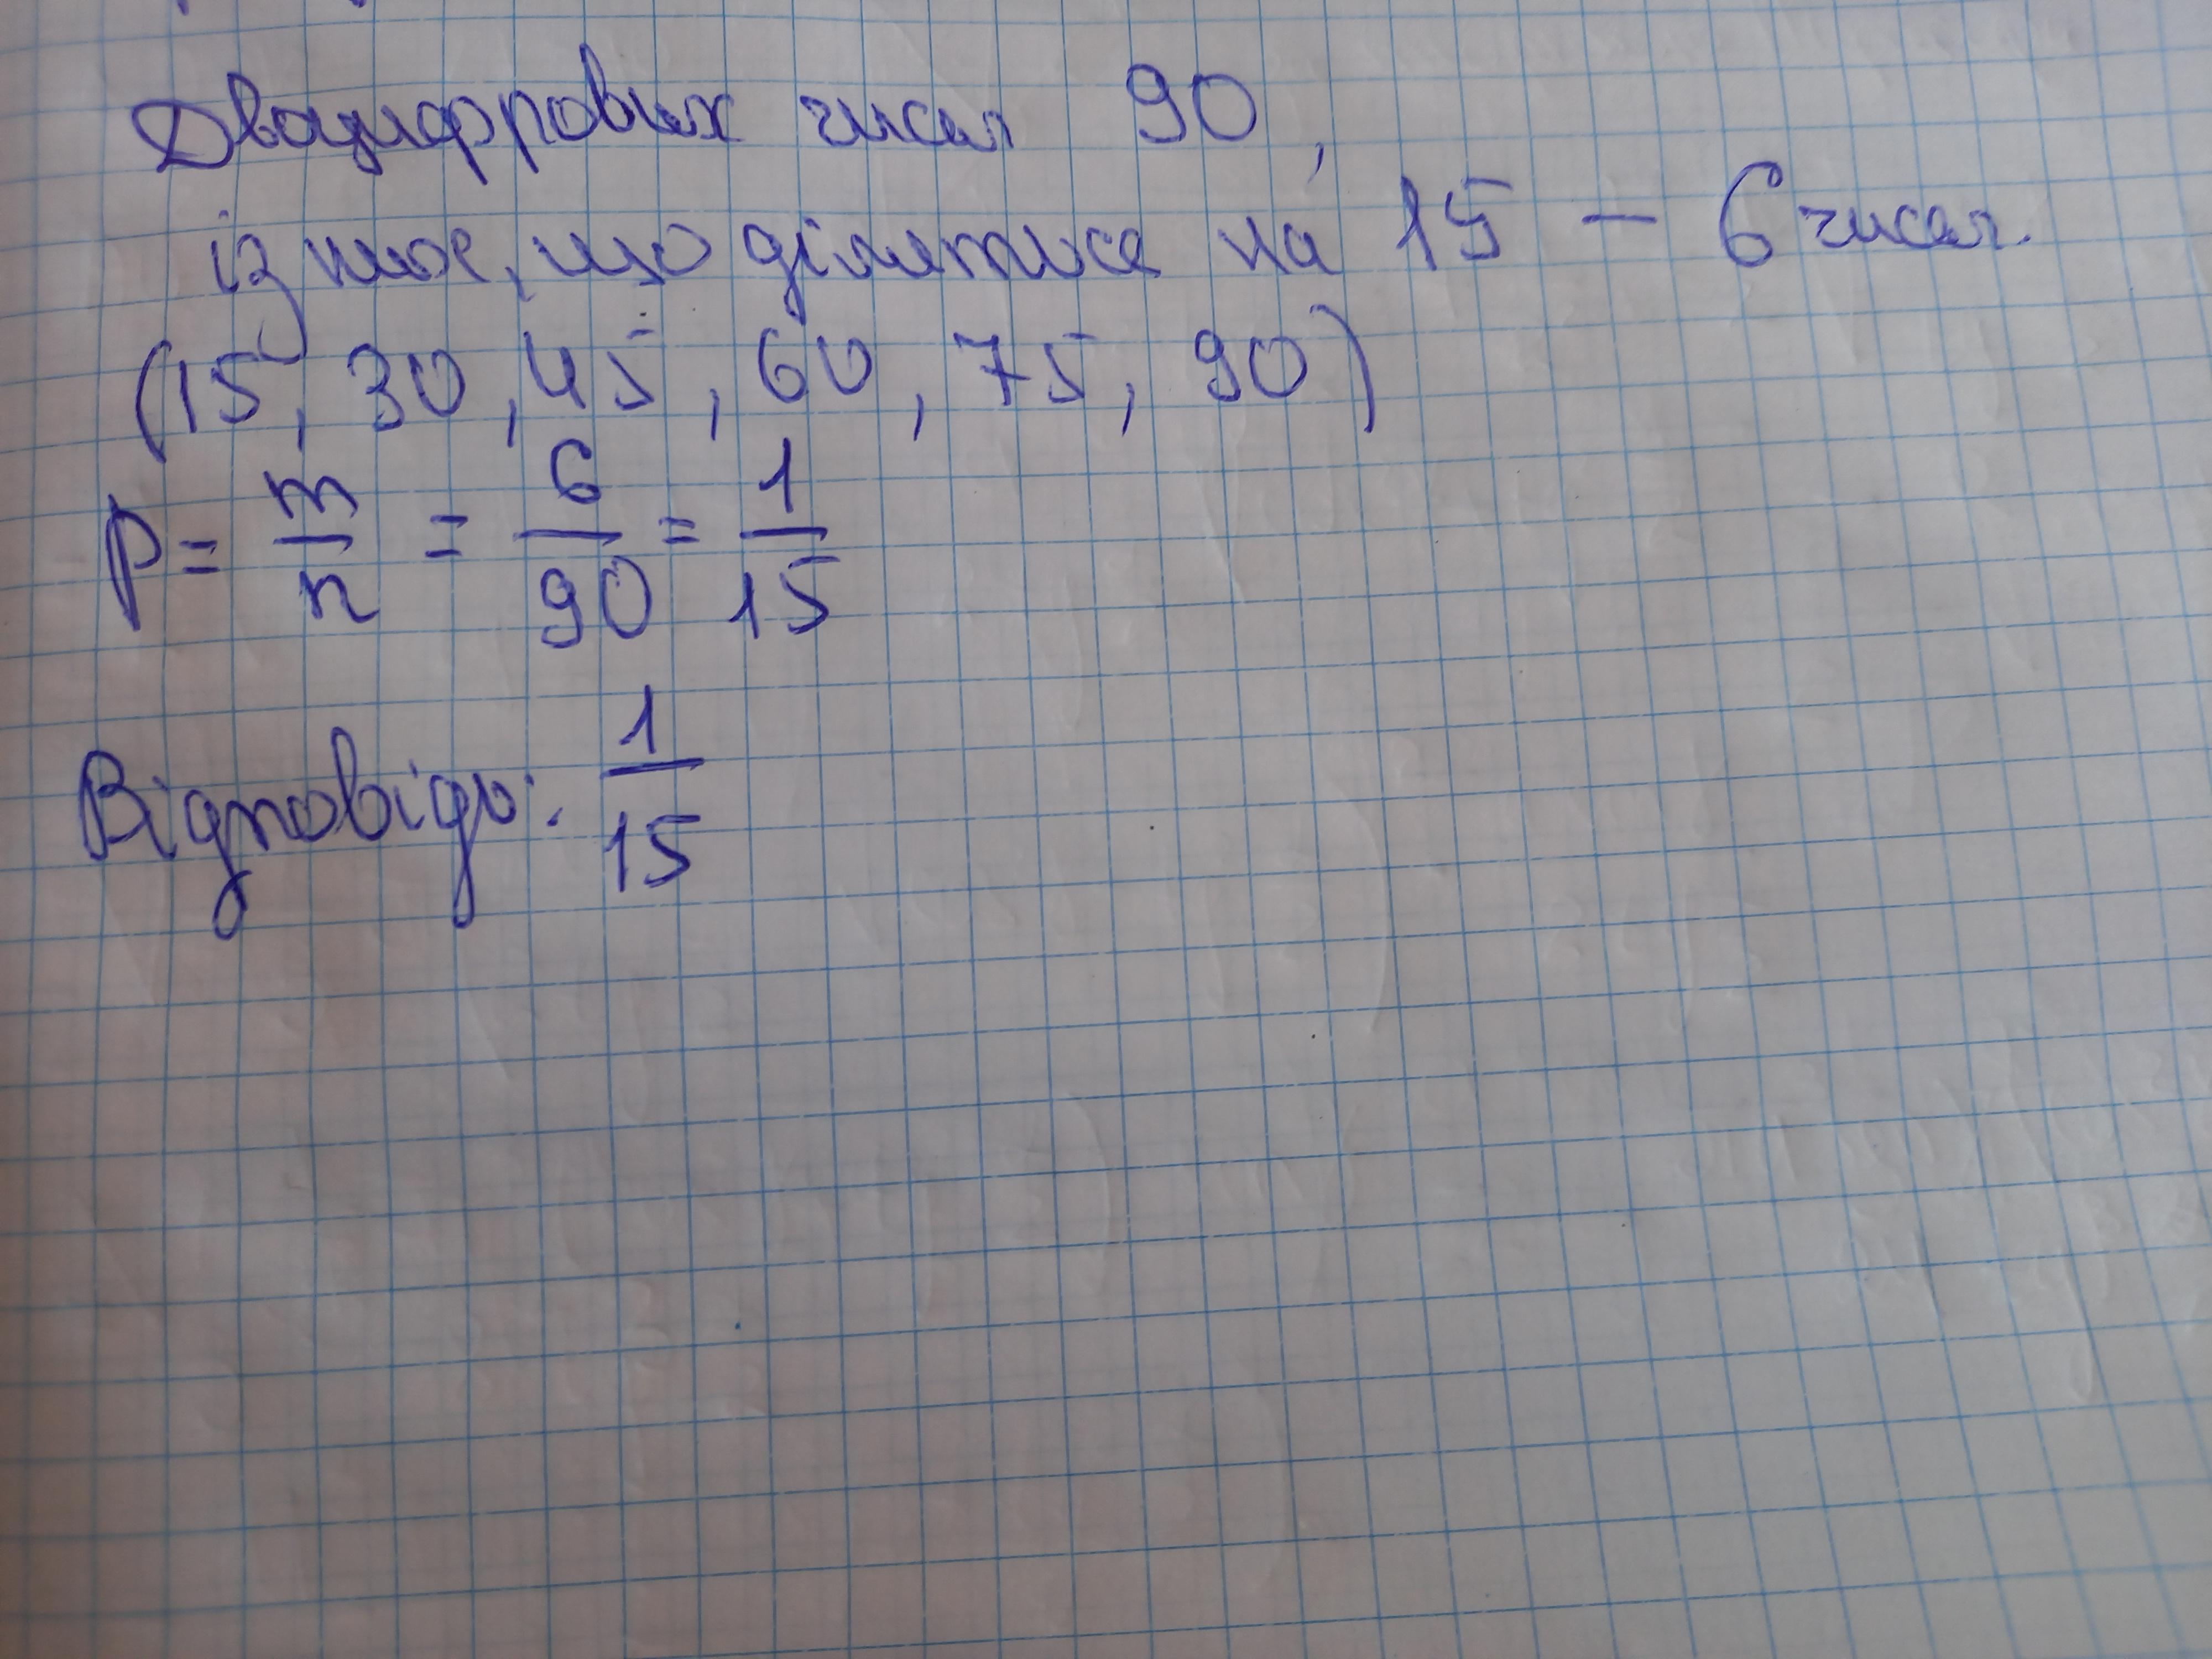 Двоцифрових чисел 90,
із них, що діляться на 15 – 6 чисел.
(15, 30, 45, 60, 75, 90)
P = m/n = 6/90 = 1/15
Відповідь: 1/15